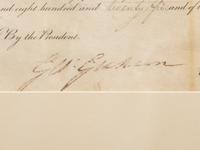 and eight hundred and twenty five and of
By the President.